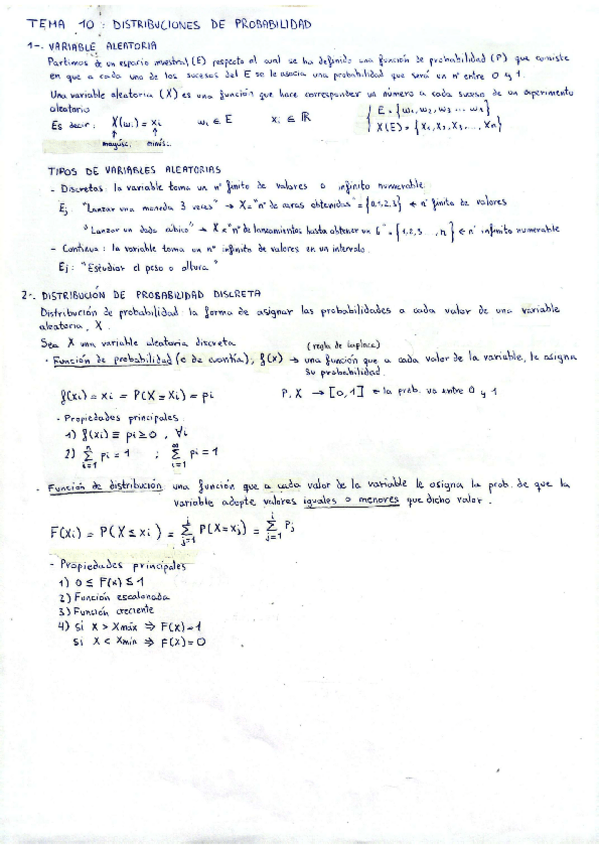 TEMA 10: DISTRIBUCIONES DE PROBABILIDAD
1-. VARIABLE ALEATORIA
Partimos de un espacio muestral (E) respecto al cual se ha definido una función de probabilidad (P) que consiste
en que a cada uno de los sucesos del E se le asocia una probabilidad que será un nº entre 0 y 1.
Una variable aleatoria (X) es una función que hace corresponder un número a cada suceso de un experimento
aleatorio
Es decir, X(wi) = xi wi ∈ E xi ∈ ℝ { E = {w1, w2, w3 ... wn}
mayúsc. minús. X(E) = {X1, X2, X3, ..., Xn}
TIPOS DE VARIABLES ALEATORIAS
- Discretas: la variable toma un nº finito de valores o infinito numerable.
Ej: "Lanzar una moneda 3 veces" → X = "nº de caras obtenidas" = {0,1,2,3} ← nº finito de valores
"Lanzar un dado cúbico" → X = "nº de lanzamientos hasta obtener un 6" = {1,2,3 ..., n} ← nº infinito numerable
- Continua: la variable toma un nº infinito de valores en un intervalo.
Ej: "Estudiar el peso o altura"
2-. DISTRIBUCIÓN DE PROBABILIDAD DISCRETA
Distribución de probabilidad: la forma de asignar las probabilidades a cada valor de una variable
aleatoria, X.
Sea X una variable aleatoria discreta
(regla de Laplace)
· Función de probabilidad (o de cuantía), f(x) → una función que a cada valor de la variable, le asigna
su probabilidad.
f(xi) = xi = P(X = Xi) = pi P, X → [0,1] ← la prob. va entre 0 y 1
- Propiedades principales
1) f(xi) ≡ pi ≥ 0, ∀i
2) n∑i=1 pi = 1 ; ∞∑i=1 pi = 1
· Función de distribución: una función que a cada valor de la variable le asigna la prob. de que la
variable adopte valores iguales o menores que dicho valor.
F(xi) = P(X ≤ xi) = i∑j=1 P(X = xj) = i∑j=1 Pj
- Propiedades principales
1) 0 ≤ F(x) ≤ 1
2) Función escalonada
3) Función creciente
4) Si X > Xmáx ⇒ F(X) = 1
Si X < Xmin ⇒ F(X) = 0